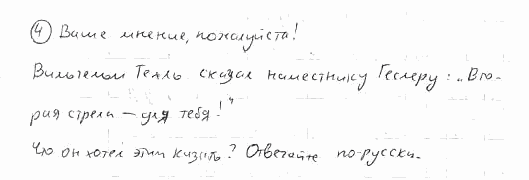 ④ Ваше мнение, пожалуйста!
Вильгельм Телль сказал наместнику Геслеру: „Вто-
рая стрела — для тебя!“
Что он хотел этим казать? Отвечайте по-русски.